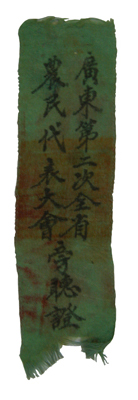 廣東第二次全省
農民代表大會旁聽證